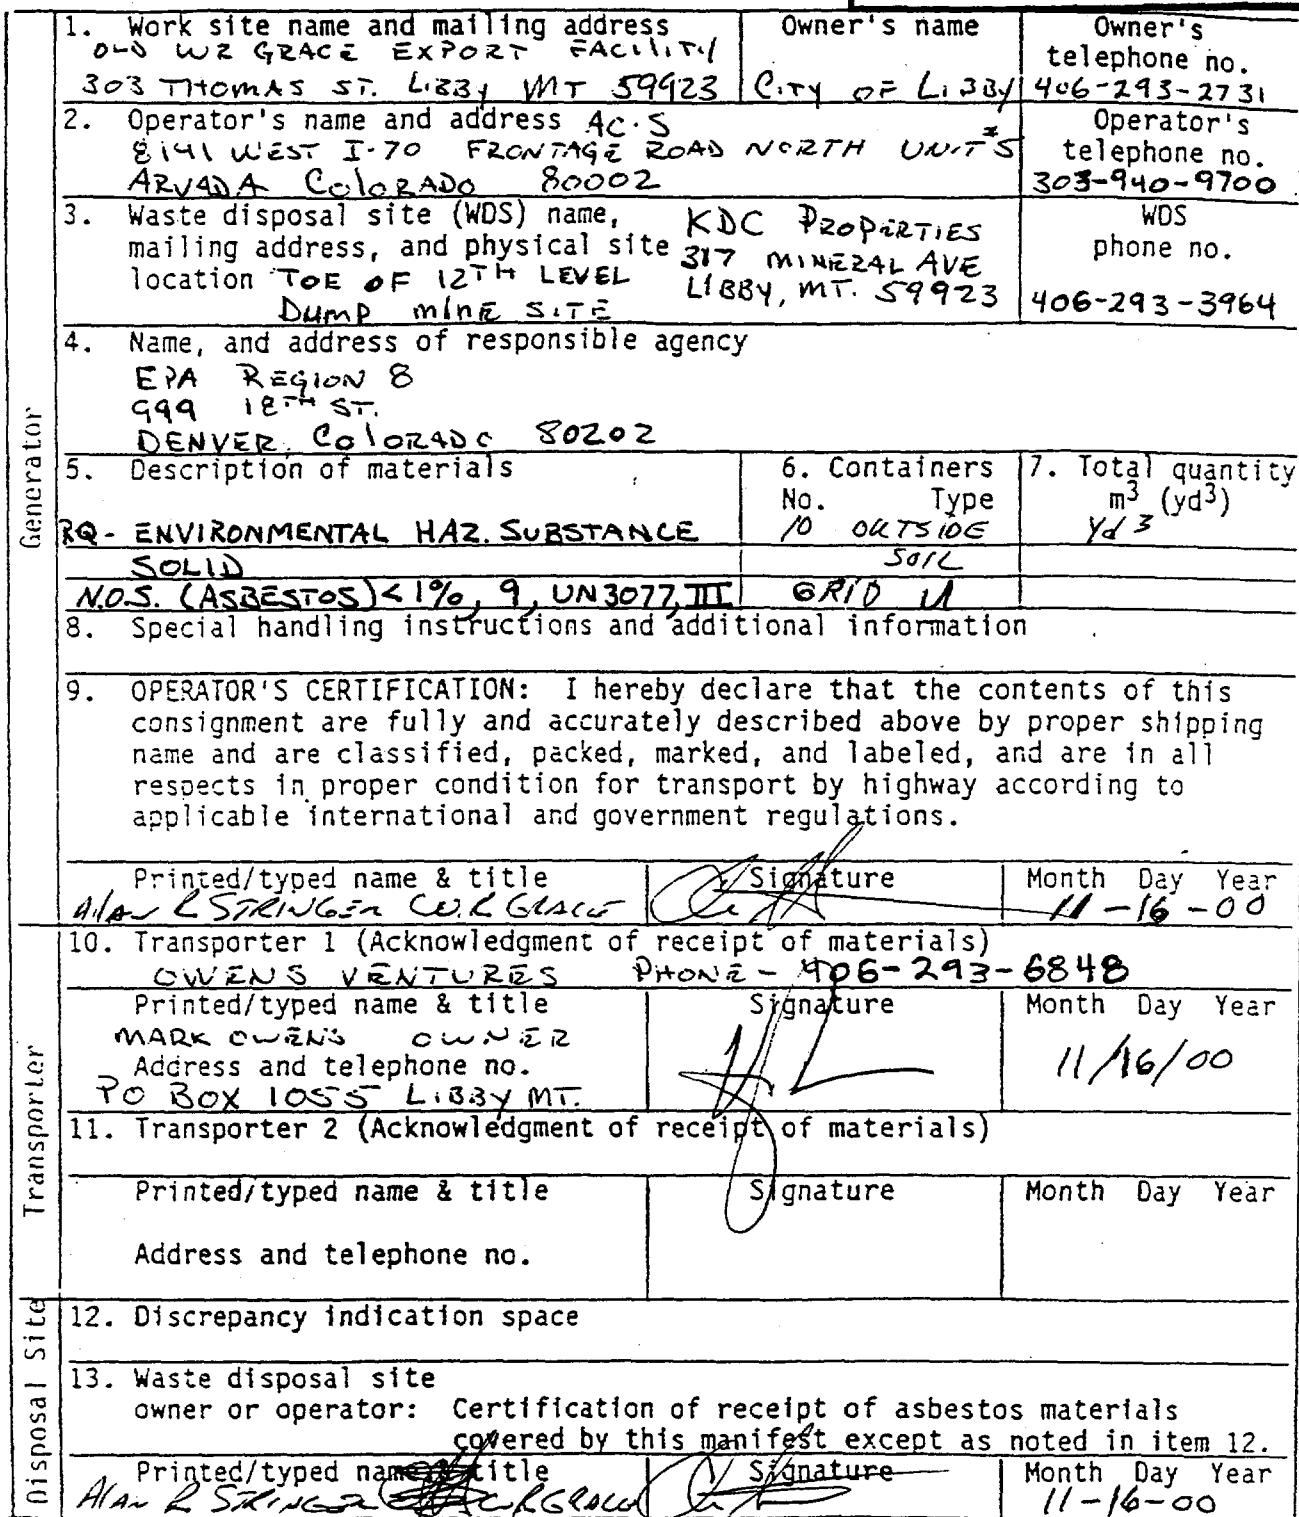 1. Work site name and mailing address
OLD WR GRACE EXPORT FACILITY
303 THOMAS ST. LIBBY MT 59923
Owner's name
CITY OF LIBBY
Owner's
telephone no.
406-293-2731
2. Operator's name and address AC.S
8141 WEST I-70 FRONTAGE ROAD NORTH UNIT #5
ARVADA COLORADO 80002
Operator's
telephone no.
303-940-9700
3. Waste disposal site (WDS) name,
mailing address, and physical site
location TOE OF 12TH LEVEL
DUMP MINE SITE
KDC PROPERTIES
317 MINERAL AVE
LIBBY, MT. 59923
WDS
phone no.
406-293-3964
4. Name, and address of responsible agency
EPA REGION 8
999 18TH ST.
DENVER, COLORADO 80202
Generator
5. Description of materials
RQ- ENVIRONMENTAL HAZ. SUBSTANCE
SOLID
N.O.S. (ASBESTOS) <1%, 9, UN3077, III
6. Containers
No. Type
10 OUTSIDE
SOIL
GRID U
7. Total quantity
m3 (yd3)
Yd3
8. Special handling instructions and additional information
9. OPERATOR'S CERTIFICATION: I hereby declare that the contents of this
consignment are fully and accurately described above by proper shipping
name and are classified, packed, marked, and labeled, and are in all
respects in proper condition for transport by highway according to
applicable international and government regulations.
Printed/typed name & title
Alan R STRINGER W.R GRACE
Signature
Month Day Year
11-16-00
Transporter
10. Transporter 1 (Acknowledgment of receipt of materials)
OWENS VENTURES PHONE - 406-293-6848
Printed/typed name & title
MARK OWENS OWNER
Address and telephone no.
PO BOX 1055 LIBBY MT.
Signature
Month Day Year
11/16/00
11. Transporter 2 (Acknowledgment of receipt of materials)
Printed/typed name & title
Address and telephone no.
Signature
Month Day Year
Disposal Site
12. Discrepancy indication space
13. Waste disposal site
owner or operator: Certification of receipt of asbestos materials
covered by this manifest except as noted in item 12.
Printed/typed name & title
Alan R STRINGER WRGRACE
Signature
Month Day Year
11-16-00